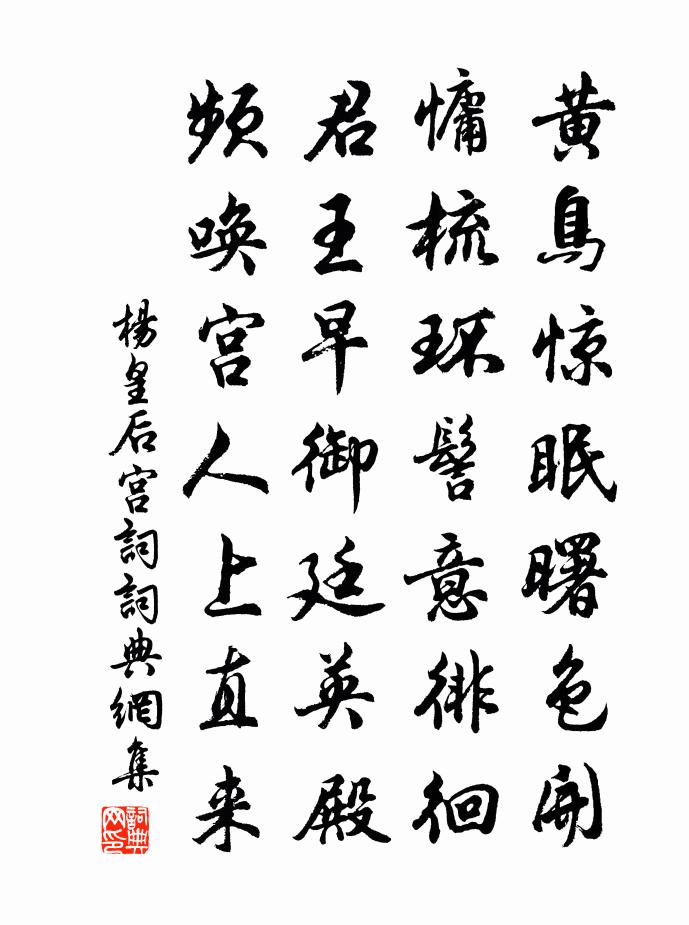 黄鳥惊眠曙色開
慵梳環髻意徘徊
君王早御延英殿
頻唤宫人上直来
楊皇后宫詞詞典網集
詞典网印